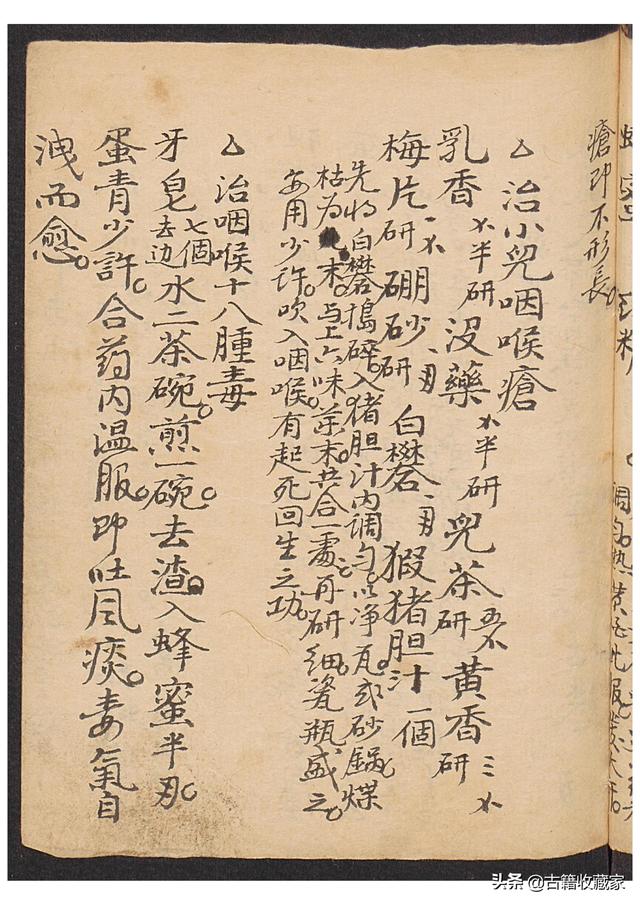 瘡即不形長。
△治小兒咽喉瘡
乳香 半研 没藥 半研 兒茶 研 黄香 研
梅片 研 硼砂 研 白礬 猳猪胆汁一個
先将白礬搗碎入猪胆汁内調匀。以净瓦或砂鍋煤
枯为末。与上六味药末共合一處。再研细瓷瓶盛之。
每用少許吹入咽喉。有起死回生之功。
△治咽喉十八腫毒
牙皂七個去边水二茶碗。煎一碗。去渣。入蜂蜜半
蛋青少許。合药内温服。即吐風痰。毒氣自
洩而愈。
头条 @古籍收藏家